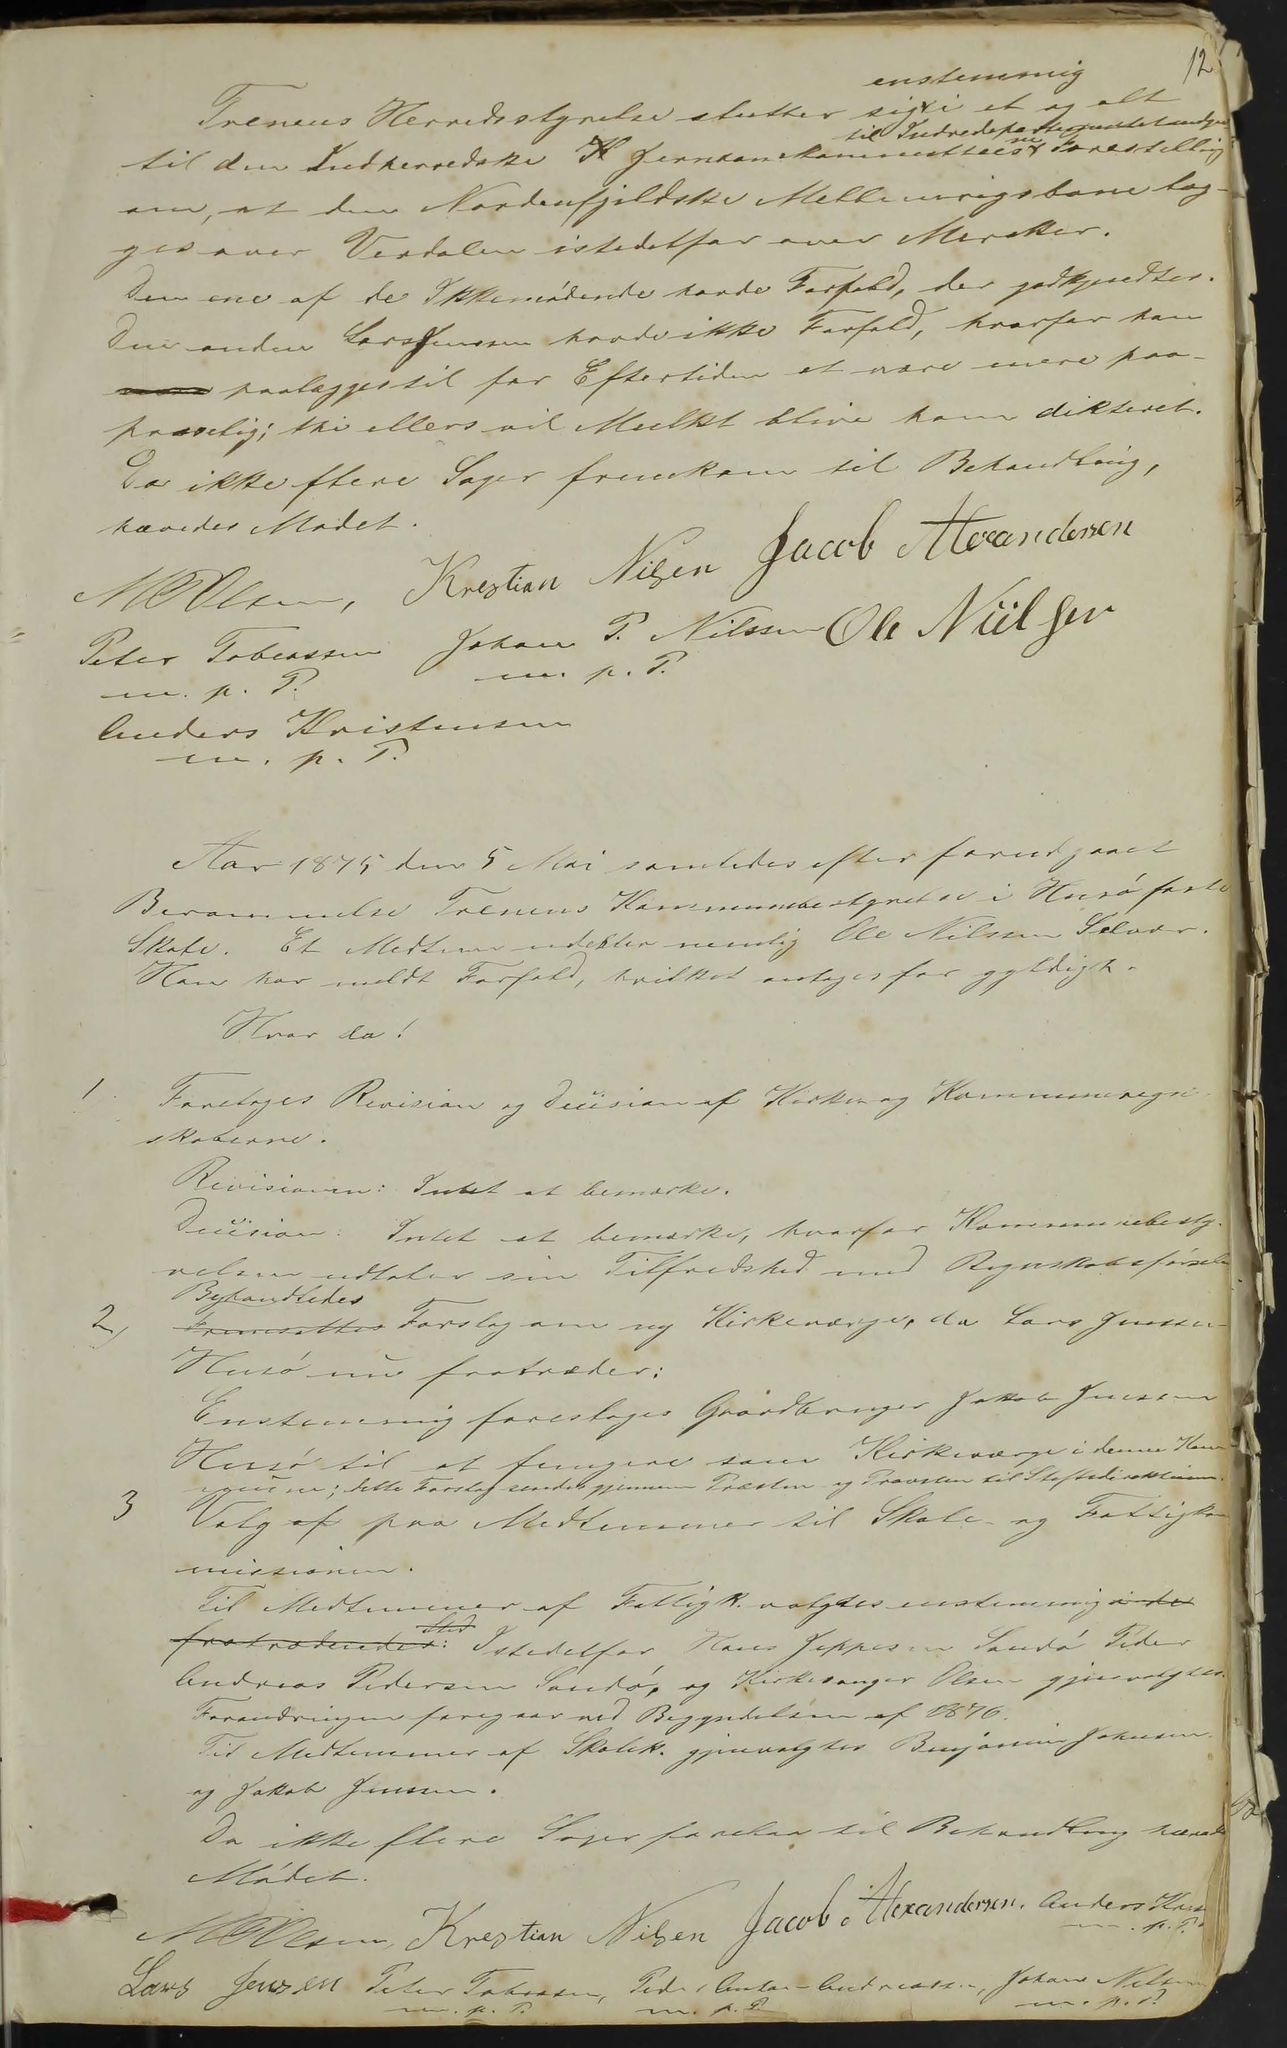 12
enstemmig
Trenens Herredsstyrelse slutter sig i et og alt
til Indredepartementet
til den Indherredske Jernbanekommittees Forestilling
om, at den Nordenfjeldske Mellemrigsbane læg-
ges over Verdalen istedetfor over Meraker.
Den ene af de Ikkemødende havde Forfald, der godkjendtes.
Den anden Lars Jenssen havde ikke Forfald, hvorfor han
paalægges til for Eftertiden at være mere paa-
passelig; thi ellers vil Mulkt blive ham dikteret.
Da ikke flere Sager fremkom til Behandling,
hævedes Mødet.
Olsen, Krestian Nilsen Jacob Alexandersen
Peter Tobiassen Johan P. Nilssen Ole Niilsen
m. p. P. m. p. P.
Anders Kristensen
m. p. P.
Aar 1875 den 5 Mai samledes efter forudgaaet
Berammelse Trenens Kommunebestyrelse i Husø faste
Skole. Et Medlem udebler nemlig Ole Nilssen Selvær.
Han har meldt Forfald, hvilket antages for gyldigt.
Hvor da!
1 Foretages Revision og Decision af Kirke og Kommuneregn-
skaberne.
Revisionen: Intet at bemærke.
Decision: Intet at bemærke, hvorfor Kommunebesty-
relsen udtaler sin Tilfredshed med Regnskabsførselen
Behandledes
2, Fremsattes Forslag om ny Kirkeværge, da Lars Jenssen
Husø nu fratræder:
Enstemmig foreslages Gaardbruger Jakob Jenssen
Husø til at fungere som Kirkeværge i denne Kom-
mune; dette Forslag sendes gjennem Præsten og Provsten til Stiftsdirektionen.
3 Valg af paa Medlemmer til Skole- og Fattigkom
missionen.
Til Medlemmer af Fattigk. valgtes enstemmig i de
Sted
fratrædendes: Istedetfor Hans Jeppesen Sandø Peder
Andreas Pedersen Sandø, og Kirkesanger Olsen gjenvalgtes.
Forandringen foregaar ved Begyndelsen af 1876.
Til Medlemmer af Skolek. gjenvalgtes Benjamin Johnsen
og Jakob Jenssen.
Da ikke flere Sager forelaa til Behandling hævedes
Mødet.
Olsen, Krestian Nilsen Jacob Alexandersen. Anders Kris
m. p. P.
Lars Jensen Peter Tobiassen, Peder Anton Andreassen, Johan Nilssen
m. p. P. m. p. P. m. p. P.